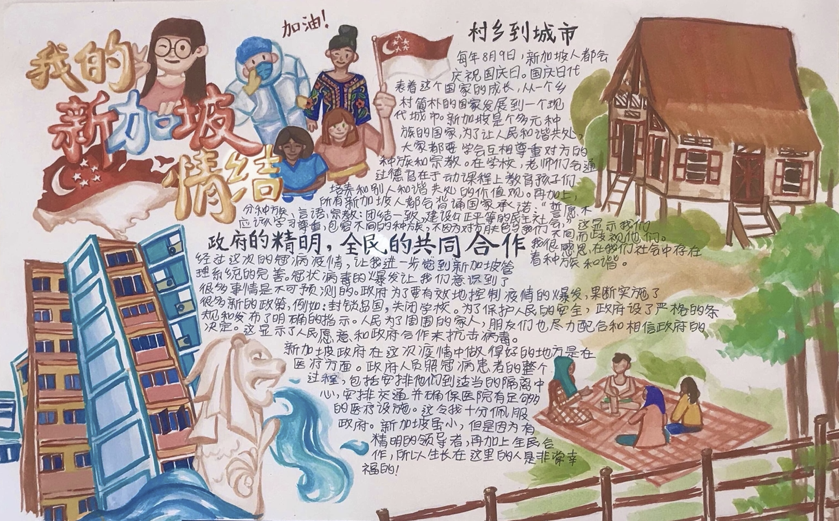 我的
新加坡
情结
加油!
村乡到城市
每年8月9日,新加坡人都会
庆祝国庆日。国庆日代
表着这个国家的成长,从一个乡
村简朴的国家发展到一个现
代城市。新加坡是个多元种
族的国家,为了让人民和谐共处,
大家都要学会互相尊重对方的
种族和宗教。在学校,老师们会通
过德育在于动课程上教育孩子们
培养和别人和谐共处的价值观。再加上,
所有新加坡人都会背诵国家承诺:"誓愿不
分种族、言语、宗教;团结一致,建设公正平等的民主社会"。这显示我们
应该学习尊重,包容不同的种族,不因为对方肤色与我们不同而歧视他们。
我很感恩在我们社会中存在
着种族和谐。
政府的精明,全民的共同合作
经过这次的冠病疫情,让我进一步悟到新加坡管
理系统的完善。冠状病毒的爆发让我们意识到了
很多事情是不可预测的。政府为了要有效地控制疫情的爆发,果断实施了
很多新的政策,例如:封锁岛国,关闭学校。为了保护人民的安全,政府设了严格的条
规和发布了明确的指示。人民为了周围的家人,朋友们也尽力配合和相信政府的
决定。这显示了人民愿意和政府合作来抗击病毒。
新加坡政府在这次疫情中做得好的地方是在
医疗方面。政府人员照冠病患者的整个
过程,包括安排他们到适当的隔离中
心,安排交通并确保医院有足够
的医疗设施。这令我十分佩服
政府。新加坡虽小,但是因为有
精明的领导者,再加上全民合
作,所以生长在这里的人是非常幸
福的!